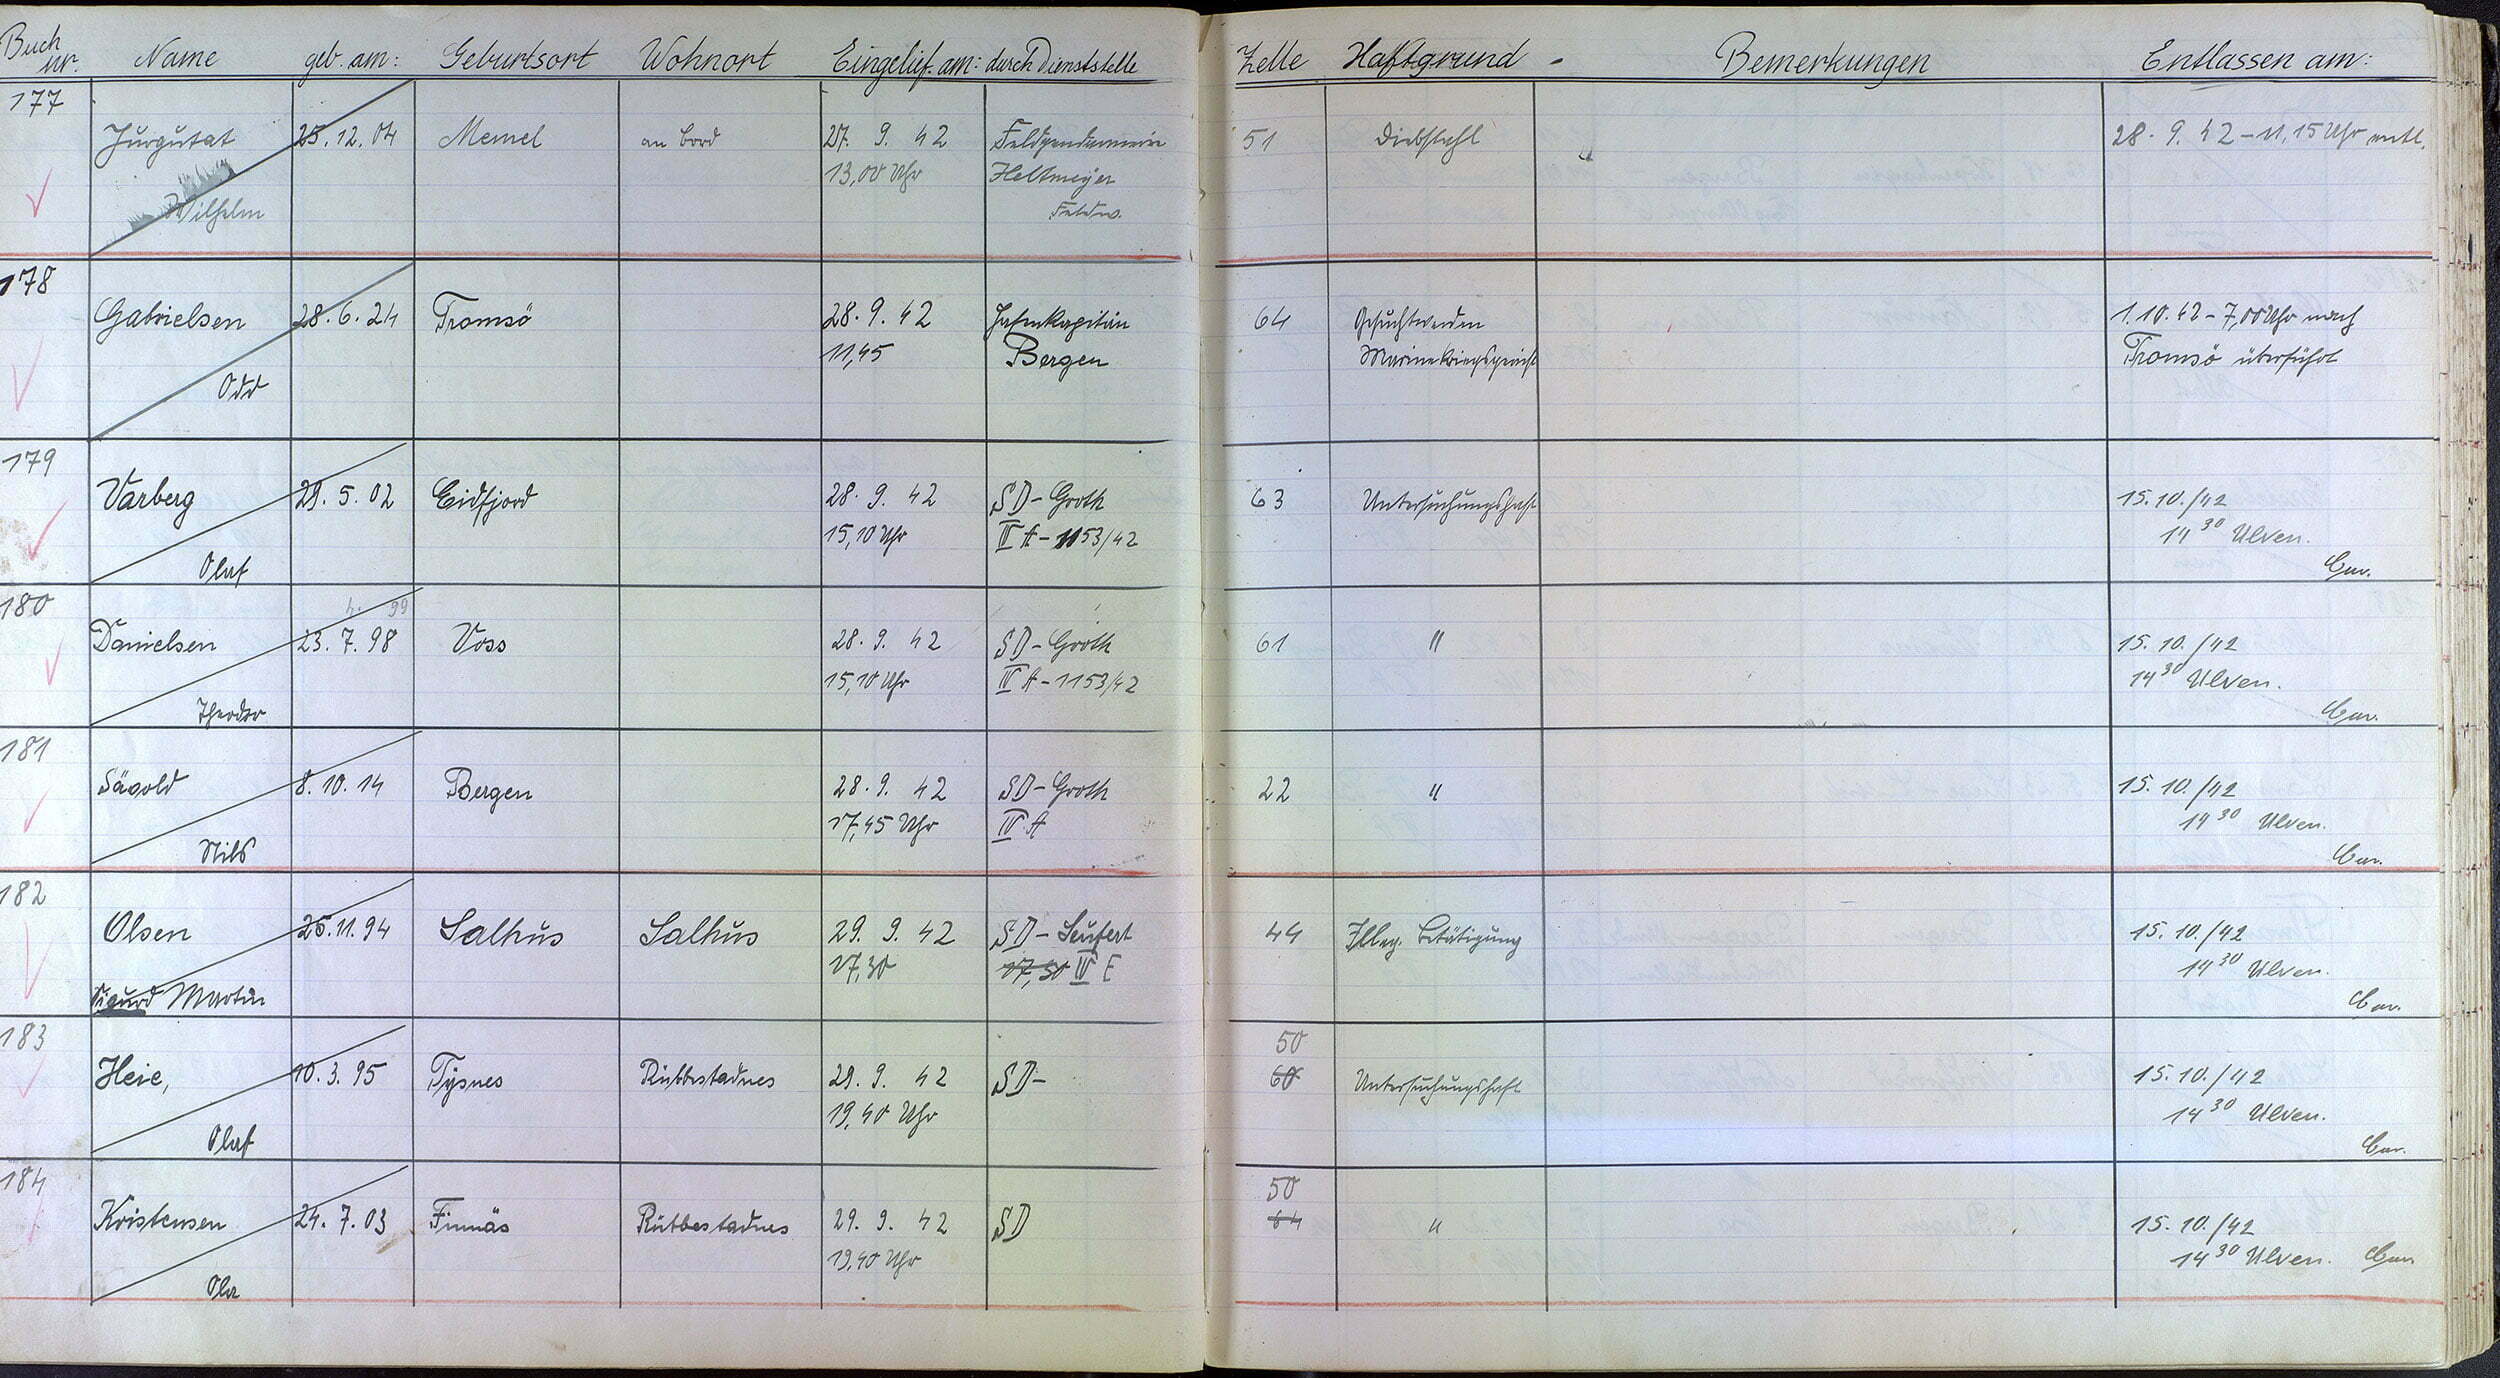 Buch nr. Name geb. am: Geburtsort Wohnort Eingelief. am: durch Dienststelle Zelle Haftgrund - Bemerkungen Entlassen am:
177
Jurgutat 25.12.04 Memel an Bord 27. 9. 42 Feldgendarmerie 51 Diebstahl 28. 9. 42 – 11,15 Uhr entl.
13,00 Uhr Heltmeyer
Wilhelm Feldw.
178
Gabrielsen 28.6.24 Tromsö 28. 9. 42 Hafenkapitän 64 1.10.42 – 7,00 Uhr nach
11,45 Bergen Marinekriegsgericht Tromsö überführt
Odd
179
Varberg 29. 5. 02 Eidfjord 28. 9. 42 SD – Groth 63 Untersuchungshaft 15.10./42
15,10 Uhr IV A – 1153/42 14 30 Ulven.
Olaf
180
4. 99
Danielsen 23. 7. 98 Voss 28. 9. 42 SD – Groth 61 " 15. 10. /42
15,10 Uhr IV A – 1153/42 14 30 Ulven.
Theodor
181
Sägold 8. 10. 14 Bergen 28. 9. 42 SD – Groth 22 " 15. 10. /42
17,45 Uhr IV A 14 30 Ulven.
Nils
182
Olsen 25.11.94 Salhus Salhus 29. 9. 42 SD – Seufert 44 Illeg. Betätigung 15. 10. /42
17,30 17,30 IV E 14 30 Ulven.
Sigurd Martin
183
50
Heie, 10. 3. 95 Tysnes Rubbestadnes 29. 9. 42 SD – 60 Untersuchungshaft 15. 10. /42
19,40 Uhr 14 30 Ulven.
Olaf
184
50
Kristensen 24. 7. 03 Finnäs Rubbestadnes 29. 9. 42 SD 64 " 15. 10. /42
19,40 Uhr 14 30 Ulven.
Ola